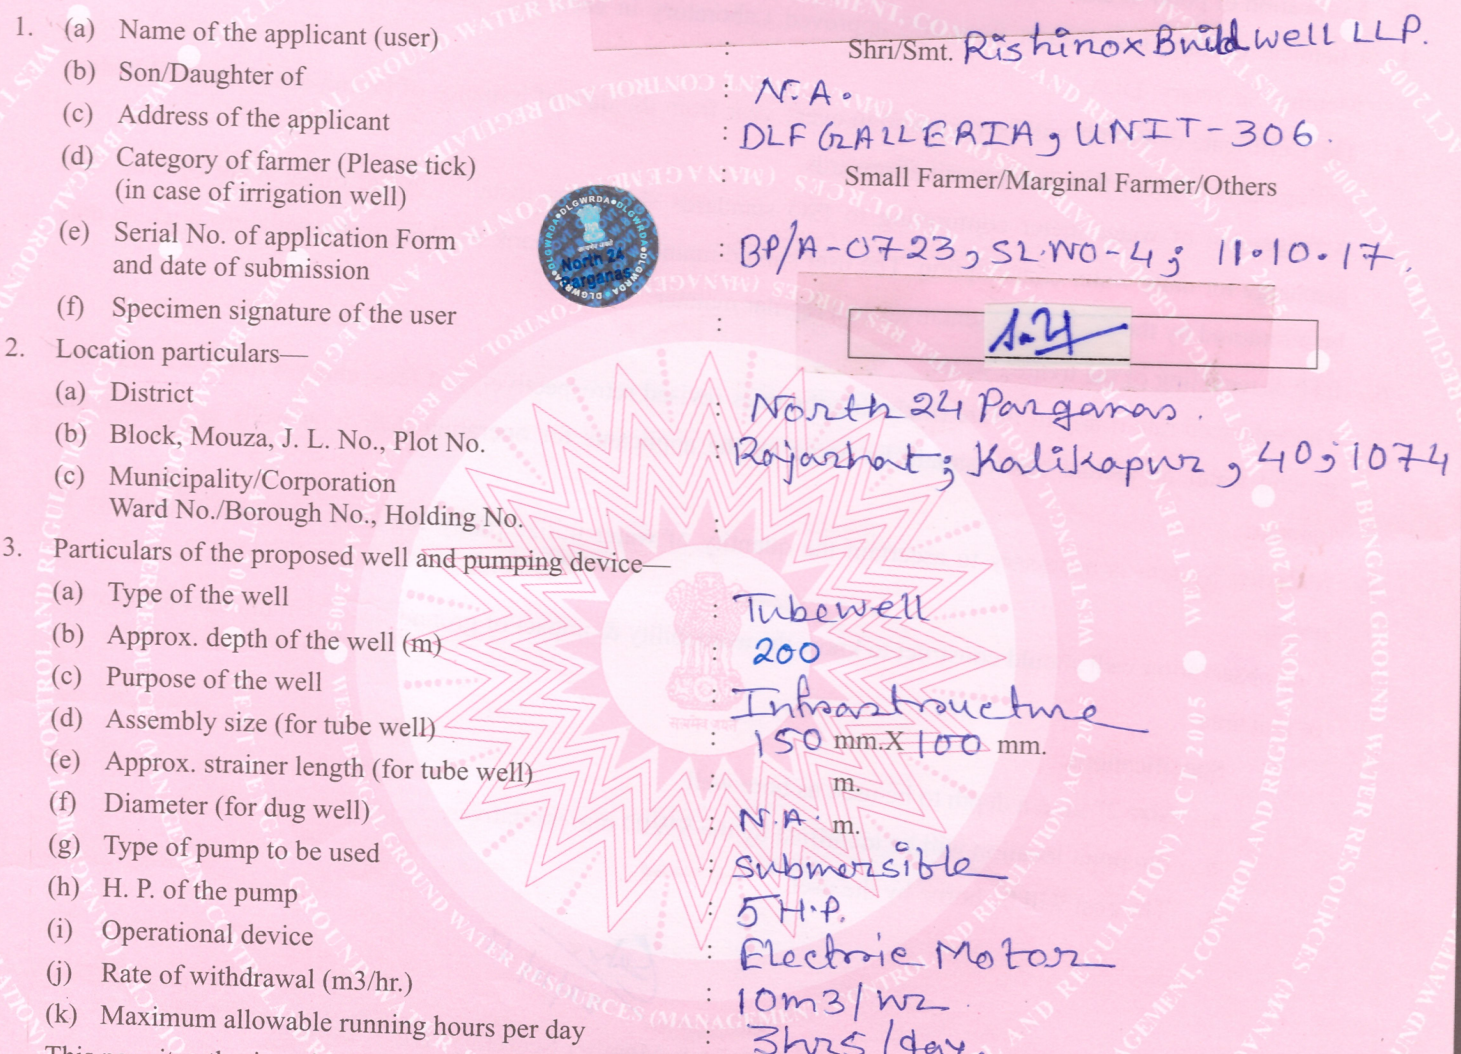 1. (a) Name of the applicant (user) : Shri/Smt. Rishinox Buildwell LLP.
(b) Son/Daughter of : N.A.
(c) Address of the applicant : DLF GALLERIA, UNIT-306.
(d) Category of farmer (Please tick) : Small Farmer/Marginal Farmer/Others
(in case of irrigation well)
(e) Serial No. of application Form : BP/A-0723, SL.NO-4; 11.10.17.
and date of submission
DLGWRDA
North 24
Parganas
(f) Specimen signature of the user :
2. Location particulars—
(a) District : North 24 Parganas.
(b) Block, Mouza, J. L. No., Plot No. : Rajarhat; Kalikapur, 40, 1074
(c) Municipality/Corporation
Ward No./Borough No., Holding No. :
3. Particulars of the proposed well and pumping device—
(a) Type of the well : Tubewell
(b) Approx. depth of the well (m) : 200
(c) Purpose of the well : Infrastructure
(d) Assembly size (for tube well) : 150 mm.X 100 mm.
(e) Approx. strainer length (for tube well) : m.
(f) Diameter (for dug well) : N.A. m.
(g) Type of pump to be used : Submersible
(h) H. P. of the pump : 5 H.P.
(i) Operational device : Electric Motor
(j) Rate of withdrawal (m3/hr.) : 10m3/hr
(k) Maximum allowable running hours per day : 3hrs/day.